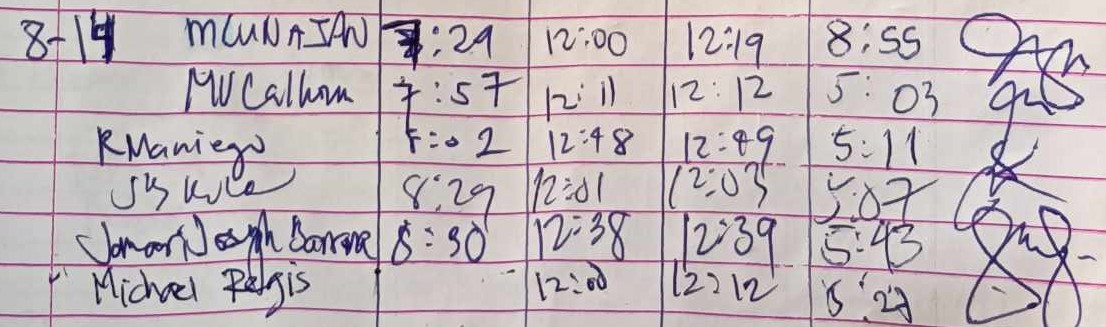 8-14 MCUNAJAN 7:29 12:00 12:19 8:55
7:57 12:11 12:12 5:03
RManiego 12:48 12:49 5:11
8:29 12:01 12:03 5:07
Joseph 8:30 12:38 12:39 5:43
Michael Regis 12:00 12:12